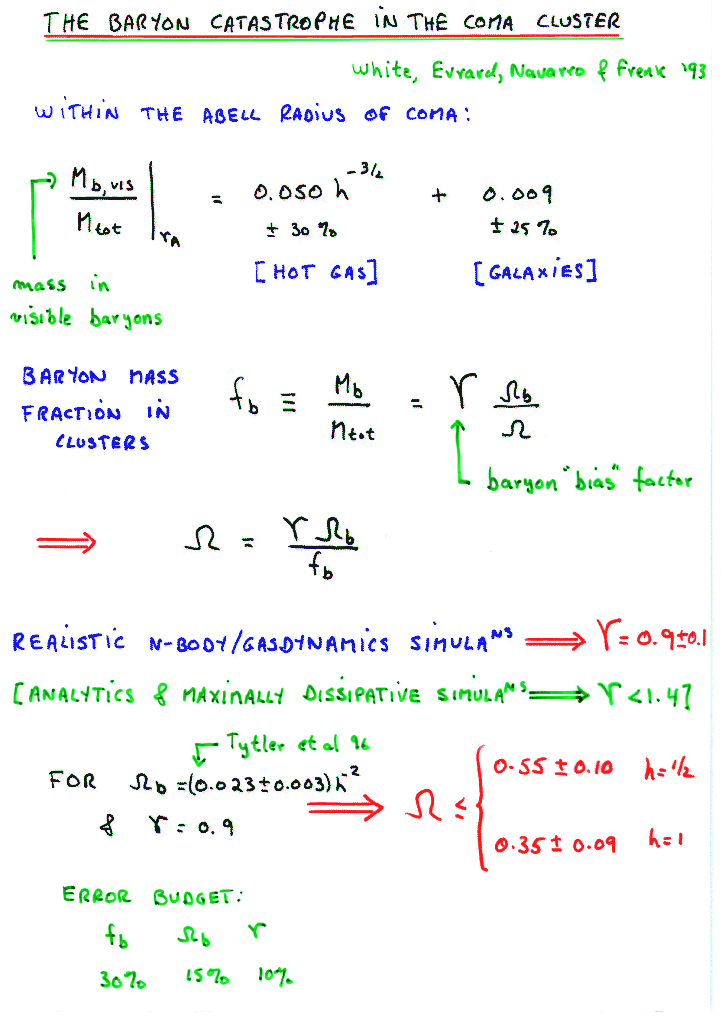 THE BARYON CATASTROPHE IN THE COMA CLUSTER
White, Evrard, Navarro & Frenk '93
WITHIN THE ABELL RADIUS OF COMA:
M_b,vis / M_tot |_r_A = 0.050 h^-3/2 + 0.009
± 30 % ± 25 %
[HOT GAS] [GALAXIES]
mass in
visible baryons
BARYON MASS
FRACTION IN
CLUSTERS
f_b ≡ M_b / M_tot = Υ Ω_b / Ω
baryon "bias" factor
⟹ Ω = Υ Ω_b / f_b
REALISTIC N-BODY/GASDYNAMICS SIMULA^NS ⟹ Υ = 0.9±0.1
[ANALYTICS & MAXIMALLY DISSIPATIVE SIMULA^NS ⟹ Υ < 1.4]
Tytler et al 96
FOR Ω_b = (0.023±0.003) h^-2
& Υ = 0.9
⟹ Ω ≤ {
0.55 ± 0.10 h = 1/2
0.35 ± 0.09 h = 1
ERROR BUDGET:
f_b Ω_b Υ
30% 15% 10%